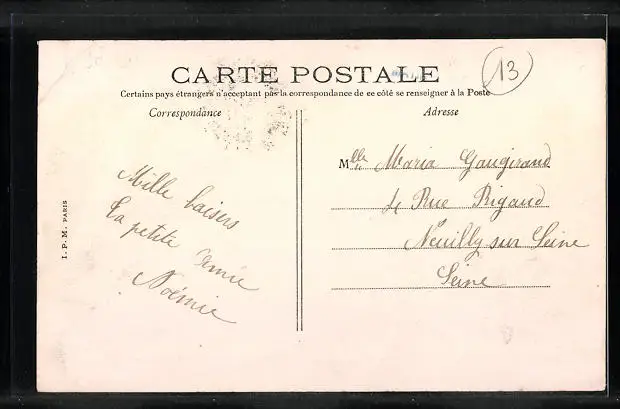 CARTE POSTALE
13
Certains pays étrangers n'acceptant pas la correspondance de ce côté se renseigner à la Poste
Correspondance
Adresse
Mille baisers
Ta petite Amie
Noémie
Mlle Maria Gaugirand
4 Rue Rigaud
Neuilly sur Seine
Seine
I. P. M. PARIS